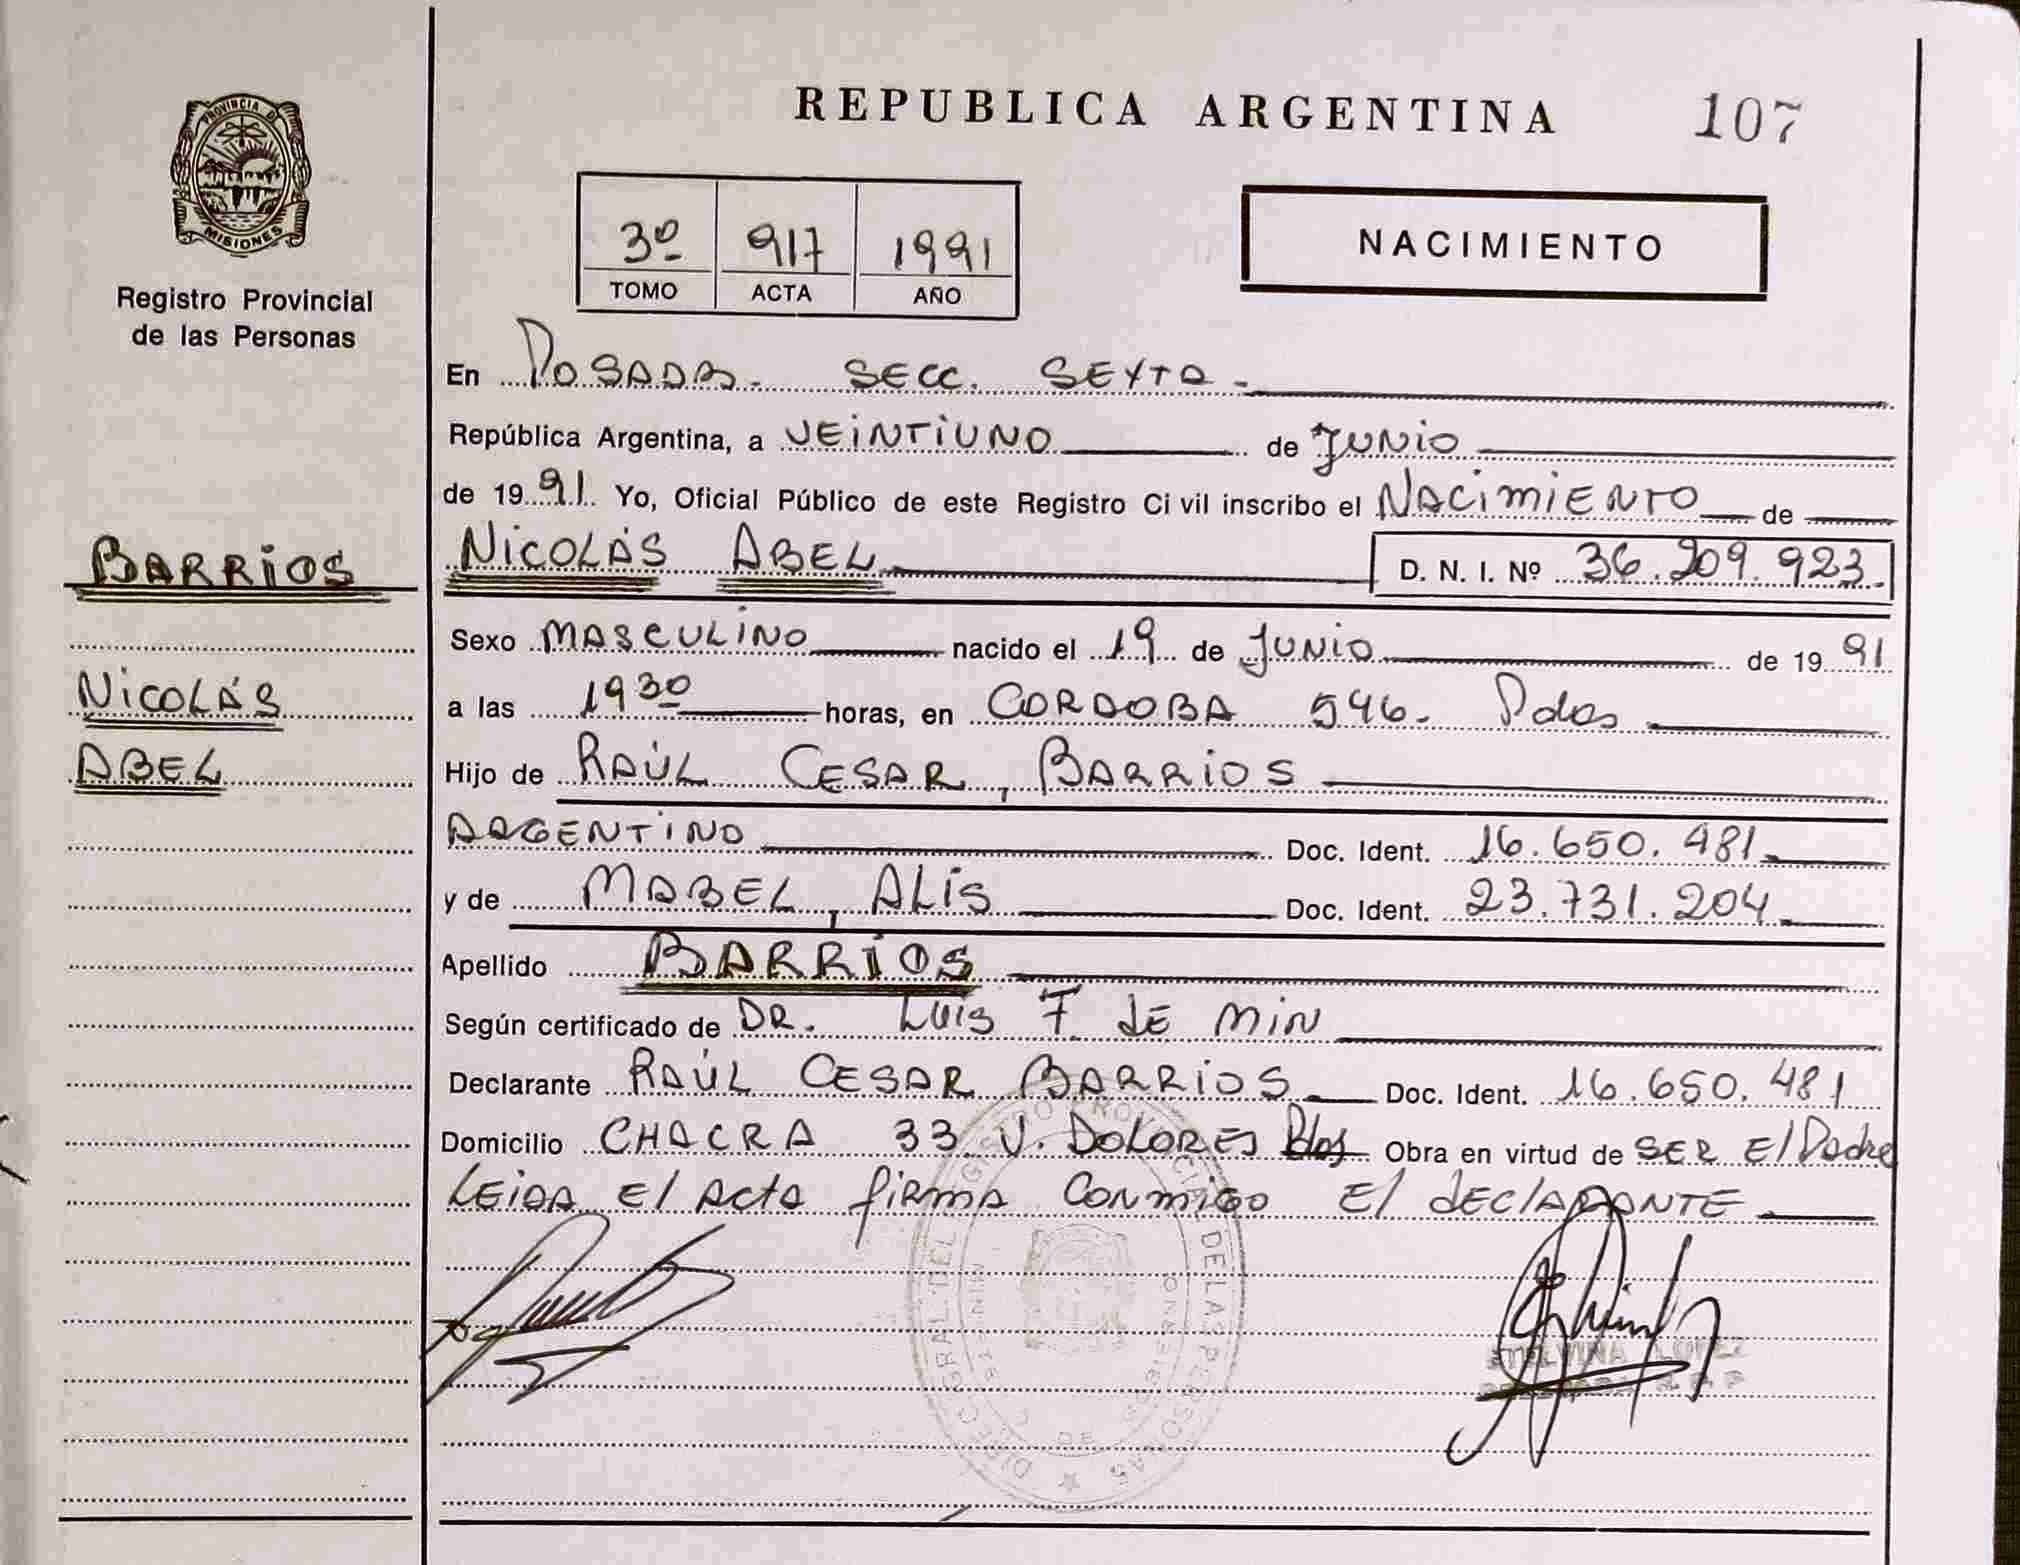 REPUBLICA ARGENTINA 107
PROVINCIA D
MISIONES
Registro Provincial
de las Personas
3º 917 1991
TOMO ACTA AÑO
NACIMIENTO
En POSADAS. SECC. SEXTA.
República Argentina, a VEINTIUNO de JUNIO
de 1991 Yo, Oficial Público de este Registro Ci vil inscribo el NACIMIENTO de
BARRIOS
NICOLÁS ABEL D. N. I. Nº 36.209.923.
Sexo MASCULINO nacido el 19 de JUNIO de 1991
NICOLÁS
a las 19 30 horas, en CORDOBA 546. Pdas
ABEL
Hijo de RAÚL CESAR, BARRIOS
ARGENTINO Doc. Ident. 16.650.481
y de MABEL, ALIS Doc. Ident. 23.731.204
Apellido BARRIOS
Según certificado de DR. LUIS F DE MIN
Declarante RAÚL CESAR BARRIOS Doc. Ident. 16.650.481
Domicilio CHACRA 33 V. DOLORES Pdas Obra en virtud de SER El Padre
LEIDA El Acta firma conmigo El declarante
DIREC. GRAL. DEL REGISTRO PROVINCIAL DE LAS PERSONAS
DE MISIONES
ETELVINA LOPEZ